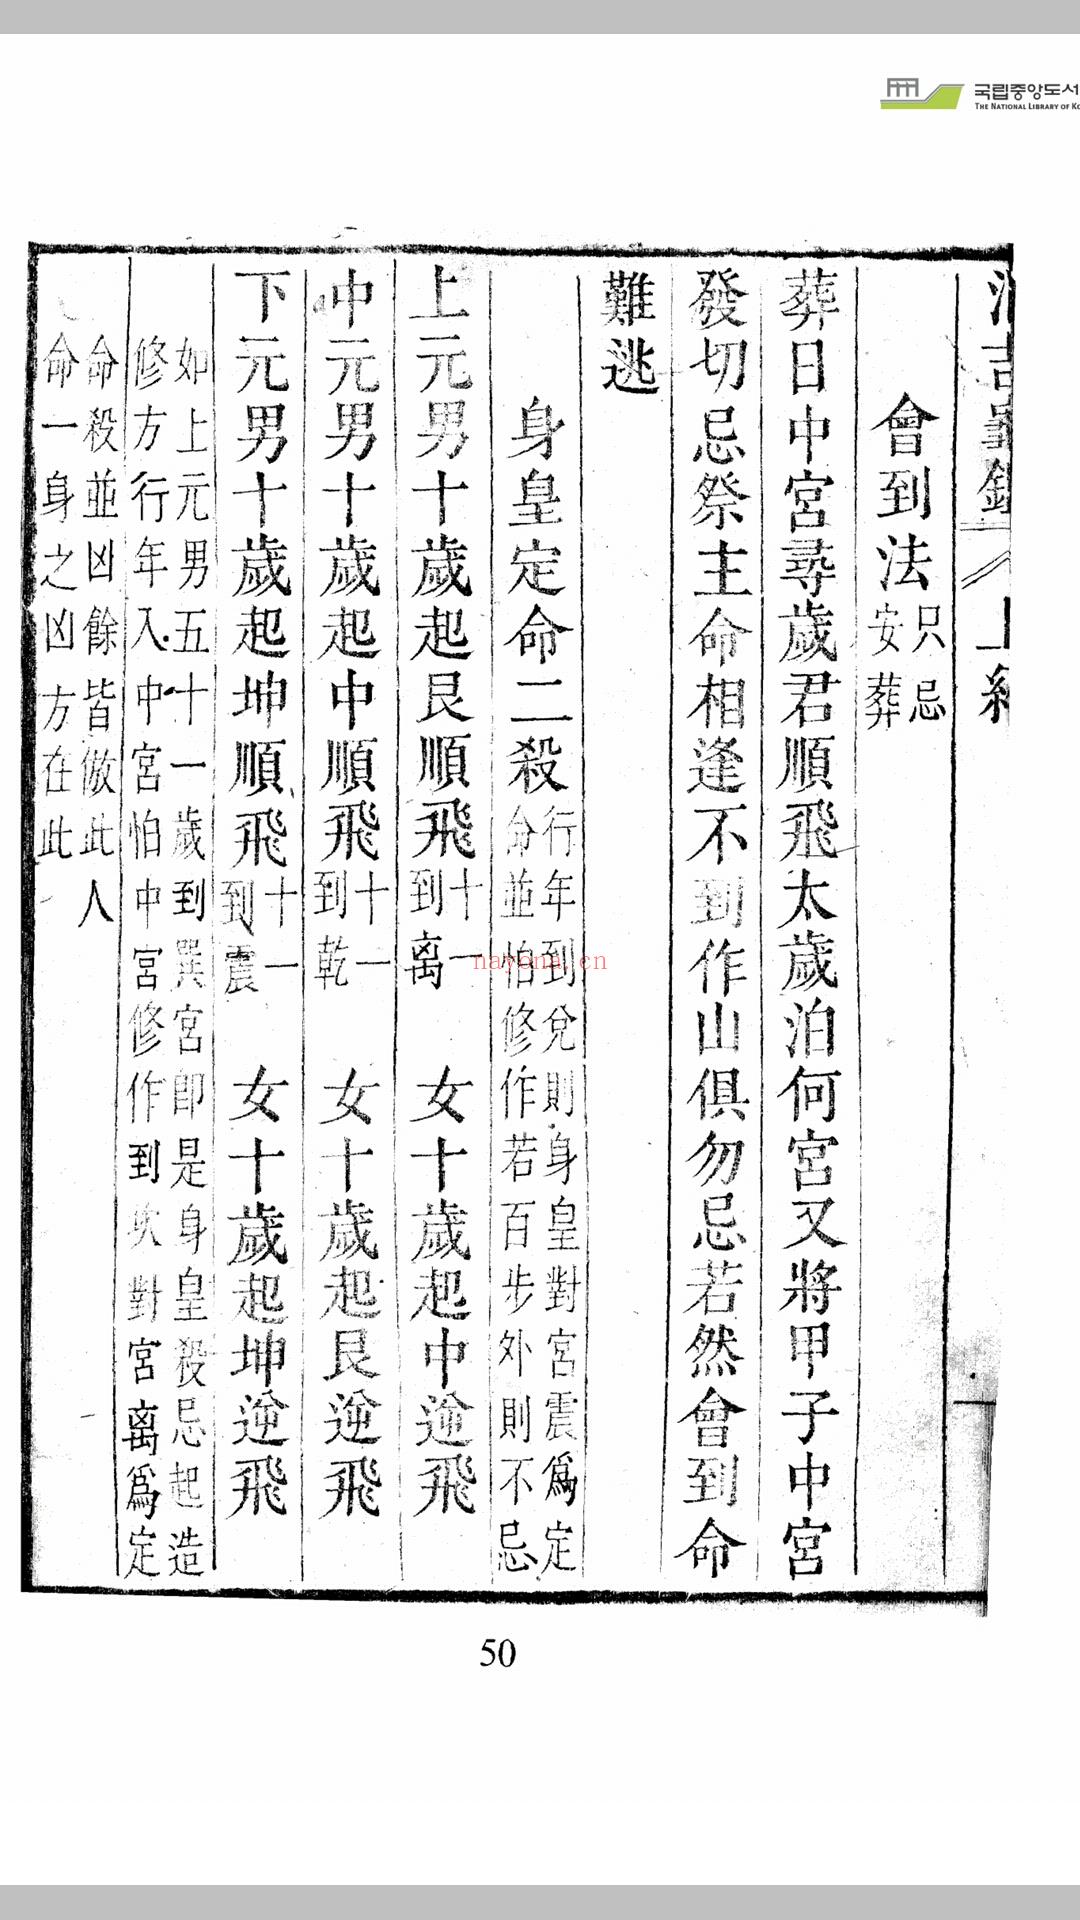 국립중앙도서
THE NATIONAL LIBRARY OF KO
吉 上
會到法只忌安葬
葬日中宮尋歲君順飛太歲泊何宮又將甲子中宮
發切忌祭主命相逢不到作山俱勿忌若然會到命
難逃
身皇定命二殺行年到兌則身皇對宮震爲定
命並怕修作若百步外則不忌
上元男十歲起艮順飛十一到离 女十歲起中逆飛
中元男十歲起中順飛十一到乾 女十歲起艮逆飛
下元男十歲起坤順飛十一到震 女十歲起坤逆飛
如上元男五十一歲到巽宮即是身皇殺忌起造
修方行年入中宮怕中宮修作到坎對宮离爲定
命殺並凶餘皆倣此人
命一身之凶方在此
nayona.cn
50